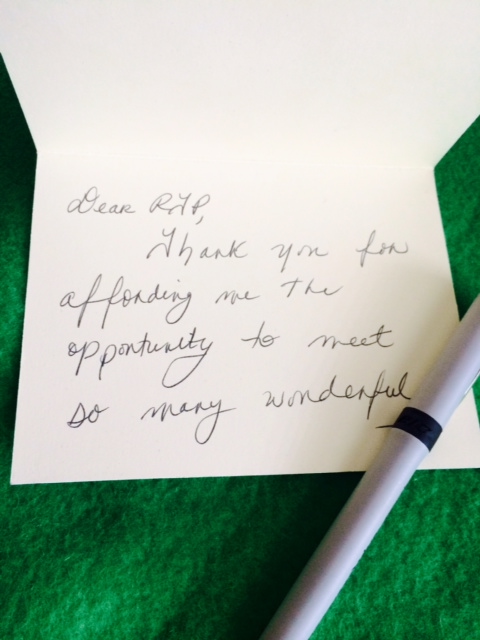 Dear RTP,
Thank you for
affording me the
opportunity to meet
so many wonderful